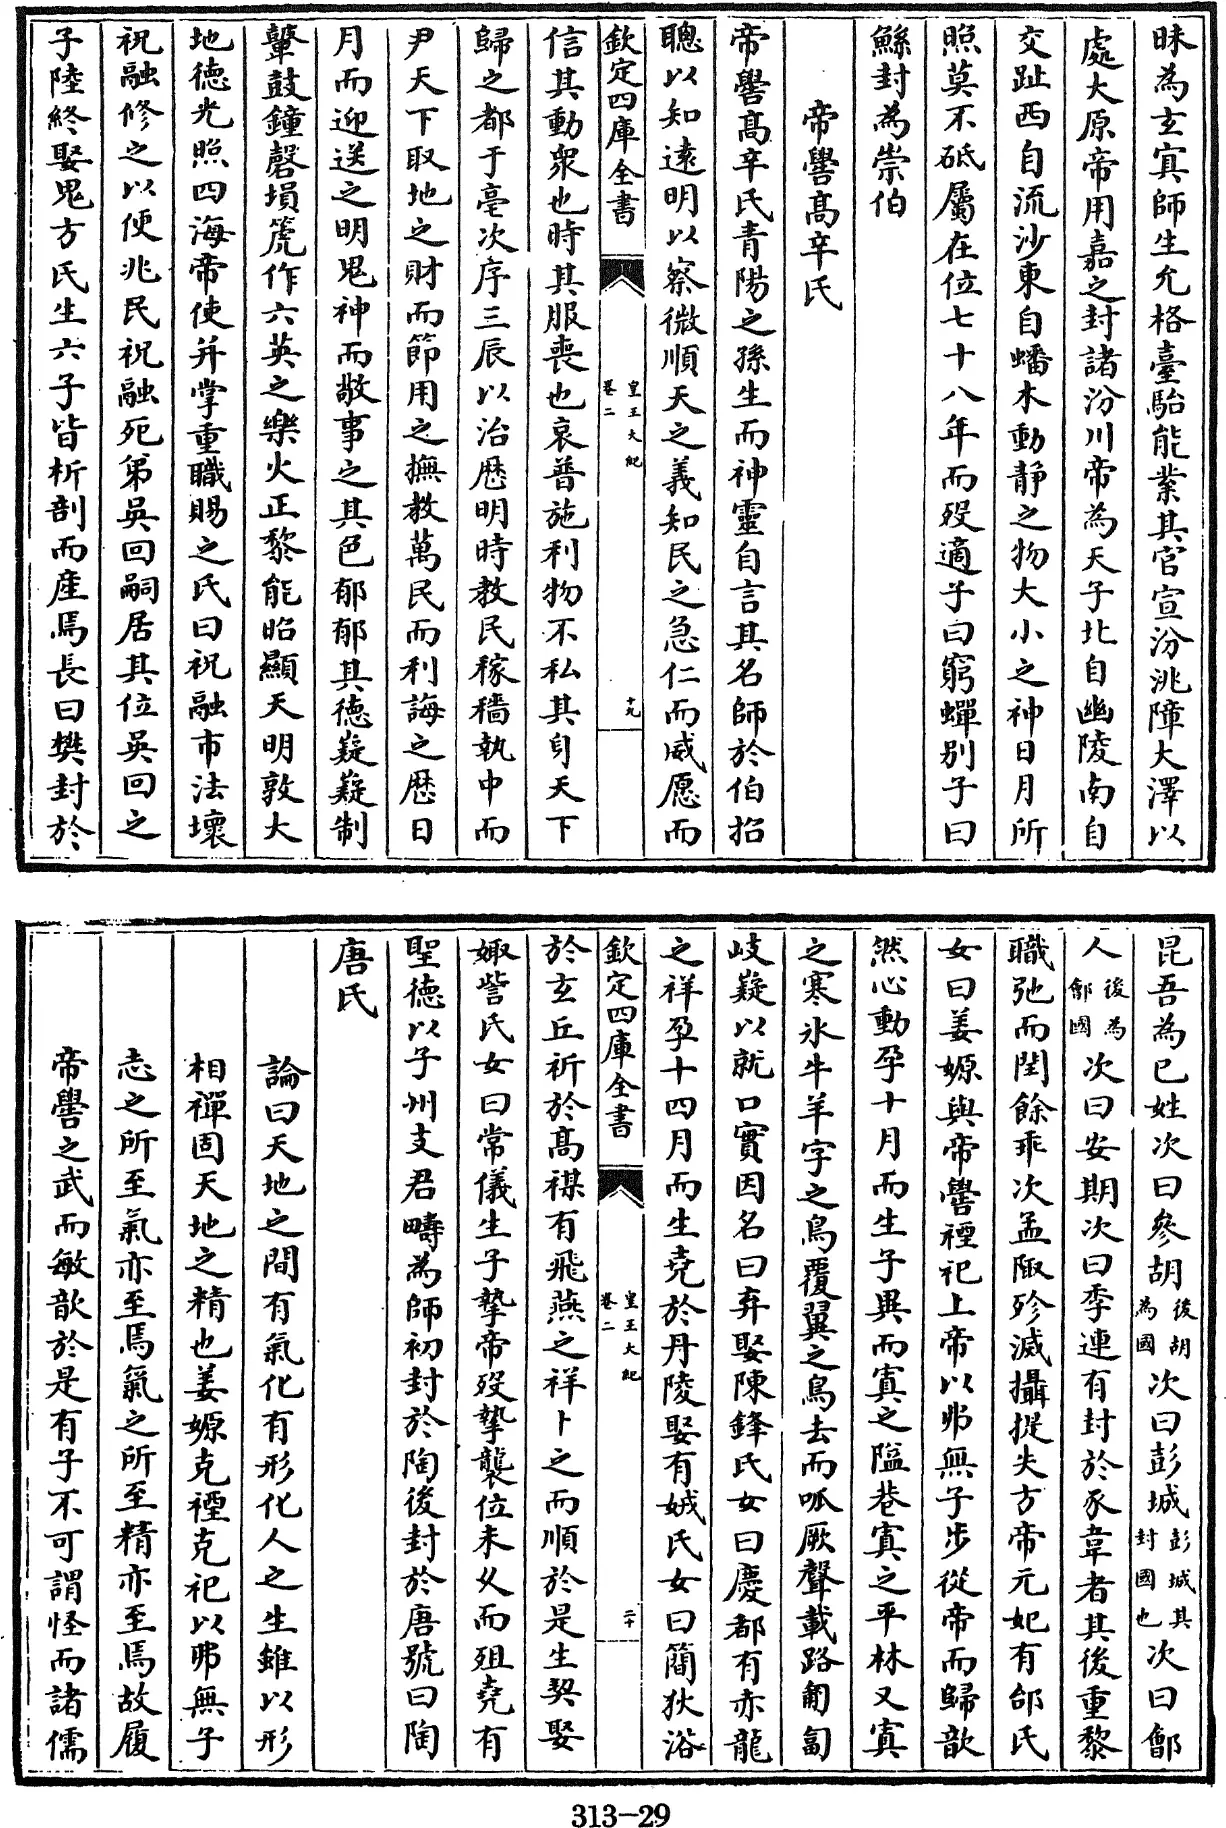 昧為玄冥師生允格臺駘能業其官宣汾洮障大澤以
處大原帝用嘉之封諸汾川帝為天子北自幽陵南自
交趾西自流沙東自蟠木動静之物大小之神日月所
照莫不砥屬在位七十八年而殁適子曰窮蟬别子曰
鯀封為崇伯
帝嚳髙辛氏
帝嚳髙辛氏青陽之孫生而神靈自言其名師於伯招
聰以知逺明以察微順天之義知民之急仁而威愿而
欽定四庫全書
皇王大紀
卷二
十九
信其動衆也時其服喪也哀普施利物不私其身天下
歸之都于亳次序三辰以治厯明時教民稼穡執中而
尹天下取地之財而節用之撫教萬民而利誨之厯日
月而迎送之明鬼神而敬事之其色郁郁其徳嶷嶷制
鼙鼓鐘磬塤箎作六英之樂火正黎能昭顯天明敦大
地徳光照四海帝使并掌重職賜之氏曰祝融市法壞
祝融修之以便兆民祝融死弟吳回嗣居其位吳回之
子陸終娶鬼方氏生六子皆析剖而産焉長曰樊封於
昆吾為已姓次曰參胡後胡為國次曰彭城彭城其封國也次曰鄶
人後為鄶國次曰安期次曰季連有封於豕韋者其後重黎
職弛而閏餘乖次孟陬殄滅攝提失方帝元妃有邰氏
女曰姜嫄與帝嚳禋祀上帝以弗無子歩從帝而歸歆
然心動孕十月而生子異而寘之隘巷寘之平林又寘
之寒氷牛羊字之鳥覆翼之鳥去而呱厥聲載路匍匐
岐嶷以就口實因名曰弃娶陳鋒氏女曰慶都有赤龍
之祥孕十四月而生堯於丹陵娶有娀氏女曰簡狄浴
欽定四庫全書
皇王大紀
卷二
二十
於玄丘祈於髙禖有飛燕之祥卜之而順於是生契娶
娵訾氏女曰常儀生子摯帝殁摯襲位未乆而殂堯有
聖徳以子州支君疇為師初封於陶後封於唐號曰陶
唐氏
論曰天地之間有氣化有形化人之生雖以形
相禪固天地之精也姜嫄克禋克祀以弗無子
志之所至氣亦至焉氣之所至精亦至焉故履
帝嚳之武而敏歆於是有子不可謂怪而諸儒
313-29